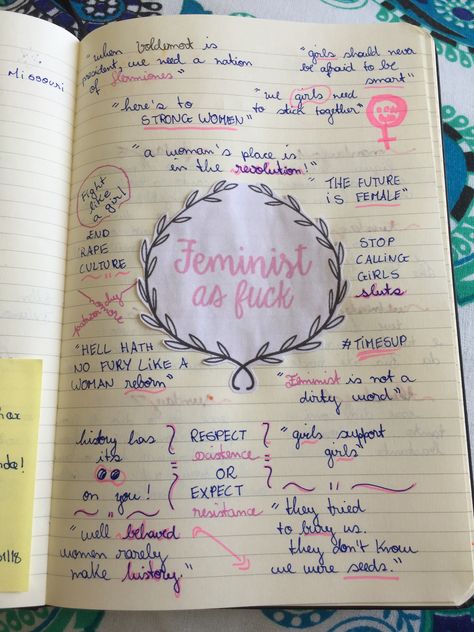 Missouri
"when Voldemort is
president, we need a nation
of Hermiones"
"girls should never
be afraid to be
smart"
"here's to
STRONG WOMEN"
"we girls need
to stick together"
"a woman's place is
in the revolution!"
Fight
like
a girl
"THE FUTURE
IS FEMALE"
END
RAPE
CULTURE
Feminist
as fuck
STOP
CALLING
GIRLS
sluts
#TIMESUP
"HELL HATH
NO FURY LIKE A
WOMAN reborn"
"Feminist is not a
dirty word"
history has
its
on you!
RESPECT
existence
OR
EXPECT
resistance
"girls support
girls"
"well behaved
women rarely
make history."
"they tried
to bury us.
they don't know
we were seeds."